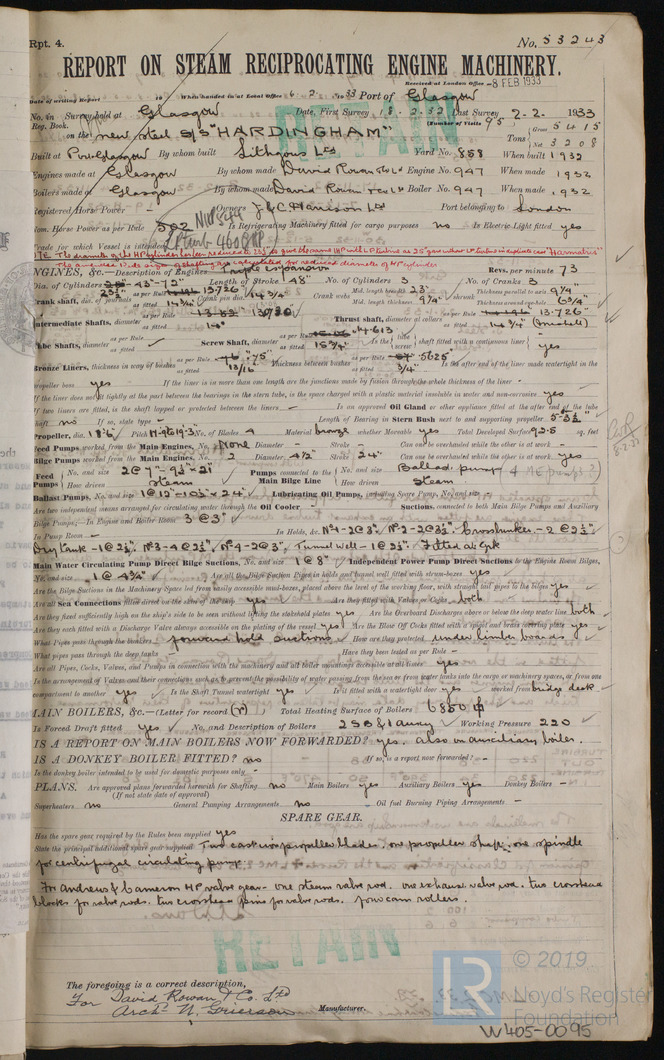 Rpt. 4. No. 53243
REPORT ON STEAM RECIPROCATING ENGINE MACHINERY.
Received at London Office 8 FEB 1933
Date of writing Report 19 When handed in at Local Office 6. 2. 1933 Port of Glasgow
No. in Survey held at Glasgow Date, First Survey 18. 2. 32 Last Survey 2-2- 1933
Reg. Book. (Number of Visits 95)
on the new steel S/S "HARDINGHAM" Tons Gross 5415
Net 3208
Built at Port Glasgow By whom built Lithgows Ltd Yard No. 858 When built 1932
Engines made at Glasgow By whom made David Rowan & Co Ltd Engine No. 947 When made 1932
Boilers made at Glasgow By whom made David Rowan & Co Ltd Boiler No. 947 When made 1932
Registered Horse Power - Owners J & C Harrison Ltd Port belonging to London
Nom. Horse Power as per Rule 502 Is Refrigerating Machinery fitted for cargo purposes no Is Electric Light fitted yes
Trade for which Vessel is intended
ENGINES, &c.—Description of Engines Triple expansion Revs. per minute 73
Dia. of Cylinders 43"-72" Length of Stroke 48" No. of Cylinders 3 No. of Cranks 3
Crank shaft, dia. of journals as per Rule 13.726 as fitted 14 3/4" Crank pin dia. 14 3/4" Crank webs Mid. length breadth 23" Mid. length thickness 9 1/4" shrunk Thickness parallel to axis 9 1/4" Thickness around eye-hole 6 3/4"
Intermediate Shafts, diameter as per Rule as fitted 14" Thrust shaft, diameter at collars as per Rule 13.726" as fitted 14 3/4" (Michell)
Tube Shafts, diameter as per Rule as fitted Screw Shaft, diameter as per Rule 14.613 as fitted 15 3/4" Is the tube screw shaft fitted with a continuous liner yes
Bronze Liners, thickness in way of bushes as per Rule .75" as fitted 13/16" Thickness between bushes as per Rule .5625 as fitted 3/4" Is the after end of the liner made watertight in the
propeller boss yes If the liner is in more than one length are the junctions made by fusion through the whole thickness of the liner -
If the liner does not fit tightly at the part between the bearings in the stern tube, is the space charged with a plastic material insoluble in water and non-corrosive yes
If two liners are fitted, is the shaft lapped or protected between the liners - Is an approved Oil Gland or other appliance fitted at the after end of the tube
shaft no If so, state type - Length of Bearing in Stern Bush next to and supporting propeller 5'-3 1/2"
Propeller, dia. 18'6" No. of Blades 4 Material bronze whether Moveable yes Total Developed Surface 92.5 sq. feet
Feed Pumps worked from the Main Engines, No. None Diameter - Stroke - Can one be overhauled while the other is at work -
Bilge Pumps worked from the Main Engines, No. 2 Diameter 4 1/2" Stroke 24" Can one be overhauled while the other is at work yes
Feed Pumps No. and size 2 @ 7"-9 1/2"x21" How driven steam Pumps connected to the Main Bilge Line No. and size Ballast pump How driven steam
Ballast Pumps, No. and size 1 @ 12"-10 1/2"x24" Lubricating Oil Pumps, including Spare Pump, No. and size -
Are two independent means arranged for circulating water through the Oil Cooler Suctions, connected to both Main Bilge Pumps and Auxiliary
Bilge Pumps;—In Engine and Boiler Room 3 @ 3"
In Pump Room - In Holds, &c. No1-2@3", No2-2@3 1/2", Crossbunker-2@2 1/2"
Dry tank -1@2 1/2", No3-4@2 1/2", No4-2@3", Tunnel well-1@2 1/2".
Main Water Circulating Pump Direct Bilge Suctions, No. and size 1 @ 8" Independent Power Pump Direct Suctions to the Engine Room Bilges,
No. and size 1 @ 4 3/4" Are all the Bilge Suction Pipes in holds and tunnel well fitted with strum-boxes yes
Are the Bilge Suctions in the Machinery Space led from easily accessible mud-boxes, placed above the level of the working floor, with straight tail pipes to the bilges yes
Are all Sea Connections fitted direct on the skin of the ship yes Are they fitted with Valves or Cocks both
Are they fixed sufficiently high on the ship's side to be seen without lifting the stokehold plates yes Are the Overboard Discharges above or below the deep water line both
Are they each fitted with a Discharge Valve always accessible on the plating of the vessel yes Are the Blow Off Cocks fitted with a spigot and brass covering plate yes
What Pipes pass through the bunkers forward hold suctions How are they protected under limber boards
What pipes pass through the deep tanks - Have they been tested as per Rule -
Are all Pipes, Cocks, Valves, and Pumps in connection with the machinery and all boiler mountings accessible at all times yes
Is the arrangement of Valves and their connections such as to prevent the possibility of water passing from the sea or from water tanks into the cargo or machinery spaces, or from one
compartment to another yes Is the Shaft Tunnel watertight yes Is it fitted with a watertight door yes worked from bridge deck
MAIN BOILERS, &c.—(Letter for record (r)) Total Heating Surface of Boilers 6850
Is Forced Draft fitted yes No. and Description of Boilers 2 SB Working Pressure 220
IS A REPORT ON MAIN BOILERS NOW FORWARDED? yes, also on auxiliary boiler.
IS A DONKEY BOILER FITTED? no If so, is a report now forwarded? -
Is the donkey boiler intended to be used for domestic purposes only -
PLANS. Are approved plans forwarded herewith for Shafting no Main Boilers yes Auxiliary Boilers yes Donkey Boilers -
(If not state date of approval)
Superheaters no General Pumping Arrangements no Oil fuel Burning Piping Arrangements -
SPARE GEAR.
Has the spare gear required by the Rules been supplied yes
State the principal additional spare gear supplied Two cast iron propeller blades, one propeller shaft, one spindle
for centrifugal circulating pump
For Andrews & Cameron HP valve gear- one steam valve rod, one exhaust valve rod, two crosshead
blocks for valve rods, two crosshead pins for valve rods, four cam rollers.
RETAIN
RETAIN
The foregoing is a correct description,
For David Rowan & Co. Ltd
Archd. W. Grierson Manufacturer.
LR © 2019
Lloyd's Register
Foundation
W405-0095